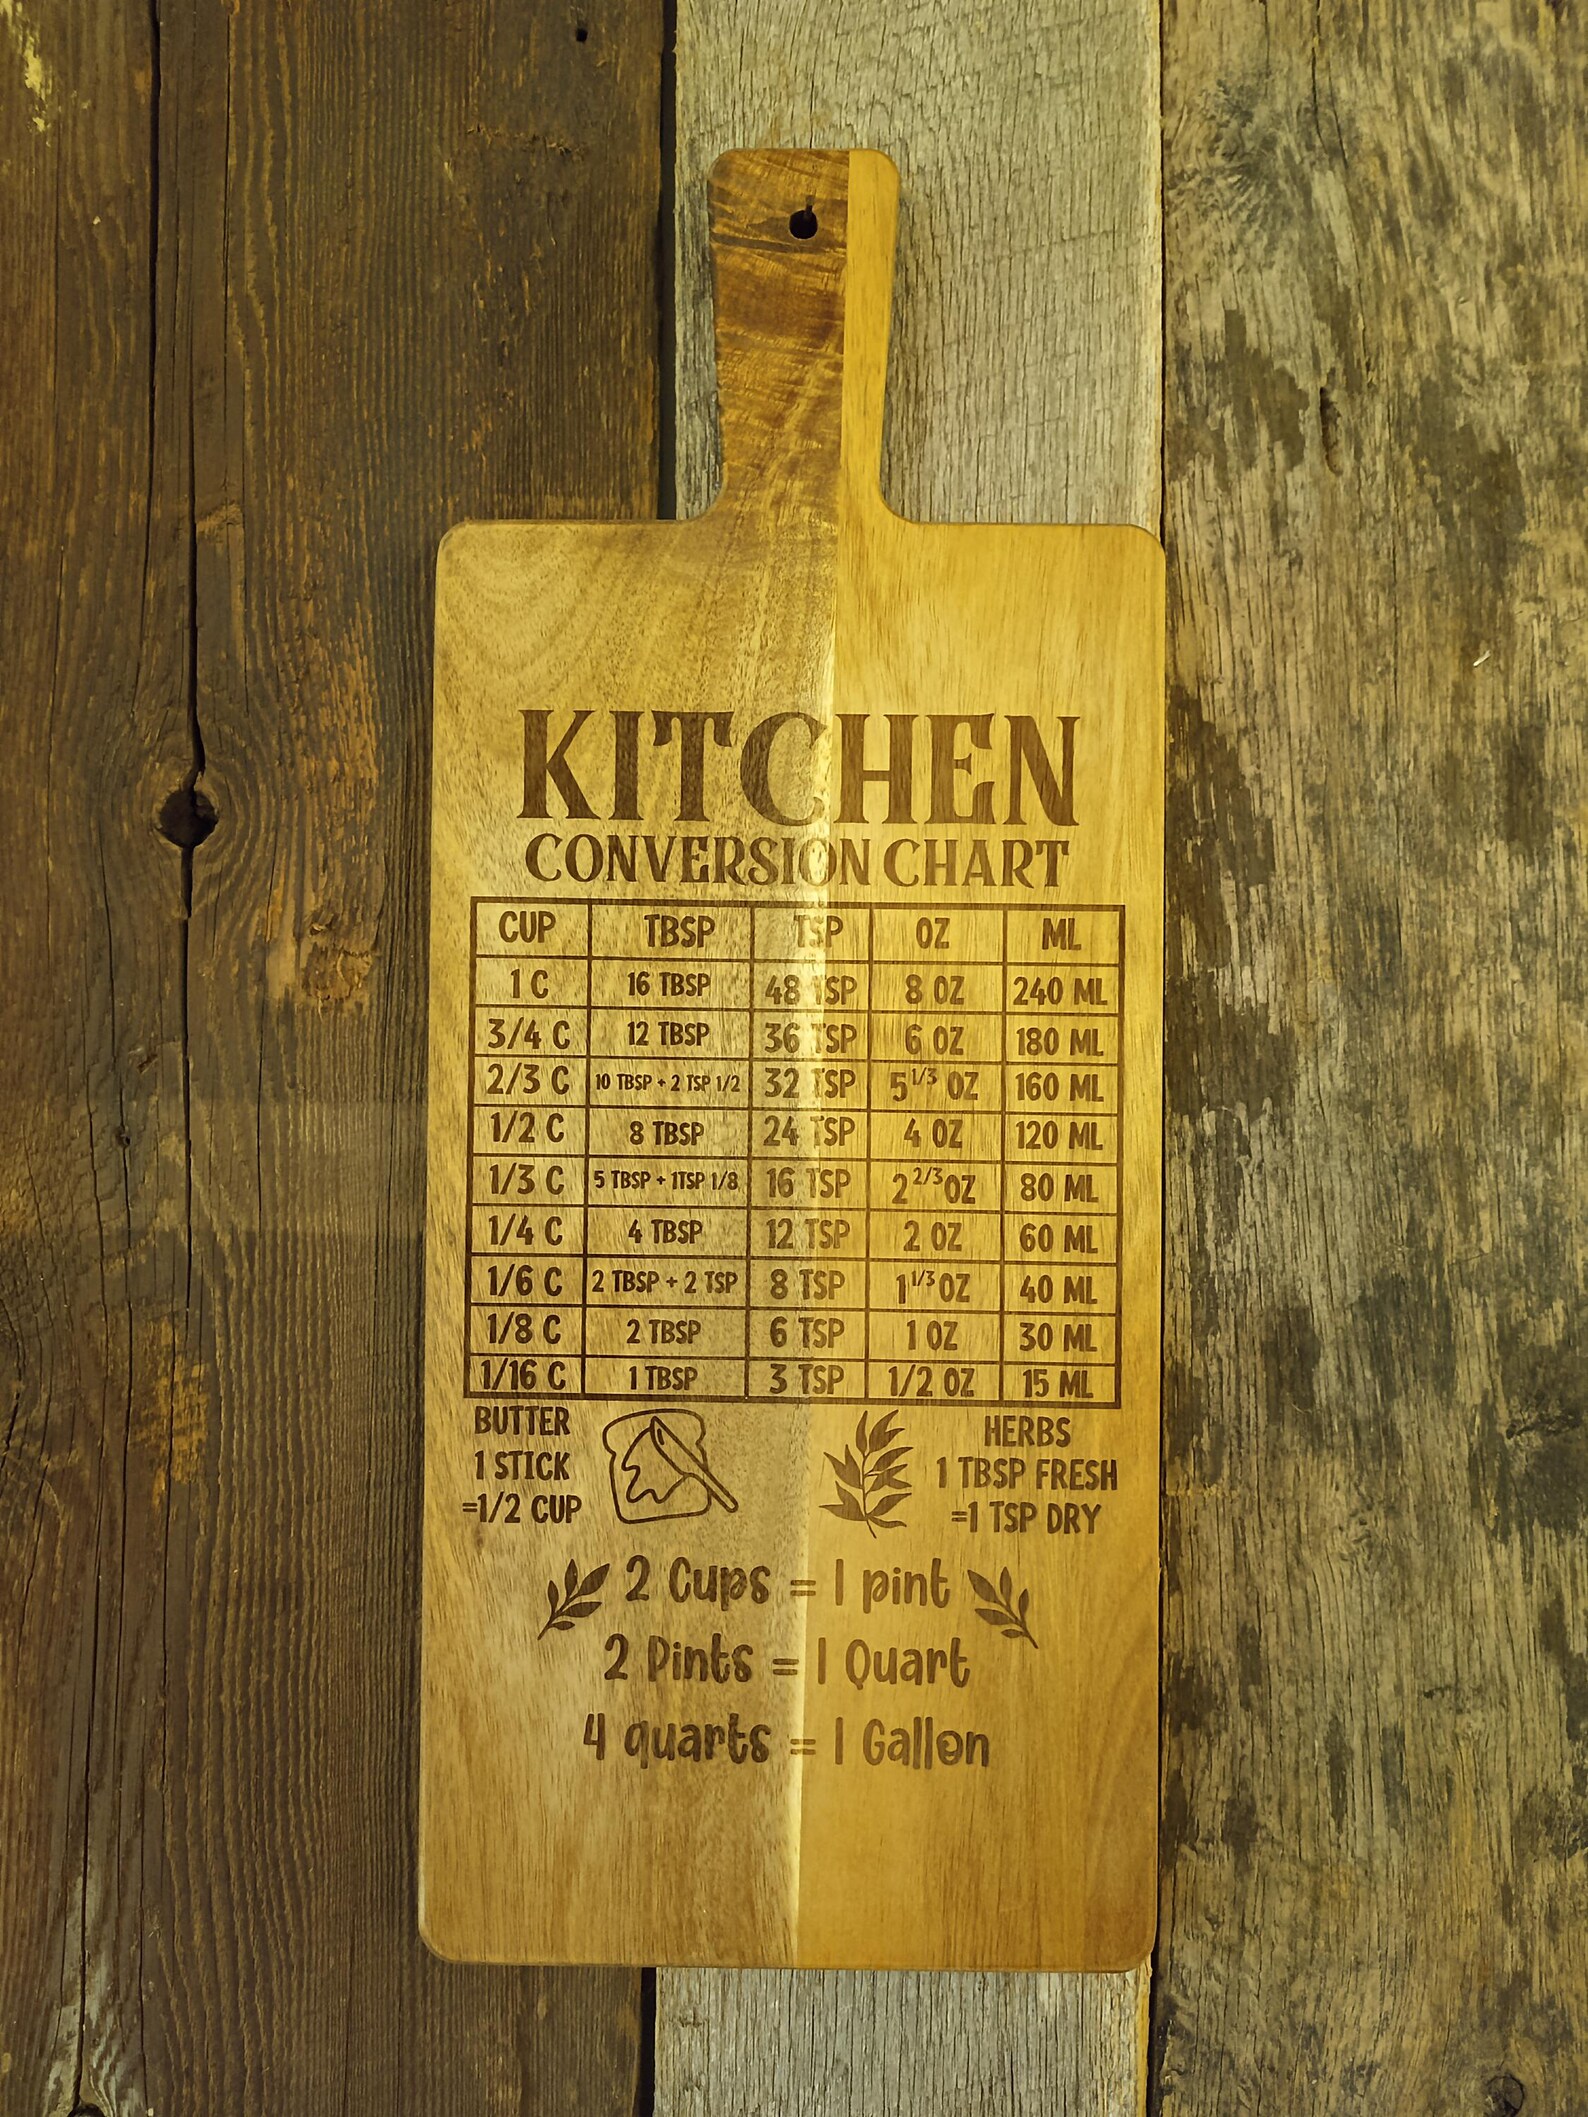 KITCHEN
CONVERSION CHART
CUP TBSP TSP OZ ML
1 C 16 TBSP 48 TSP 8 OZ 240 ML
3/4 C 12 TBSP 36 TSP 6 OZ 180 ML
2/3 C 10 TBSP + 2 TSP 1/2 32 TSP 5 1/3 OZ 160 ML
1/2 C 8 TBSP 24 TSP 4 OZ 120 ML
1/3 C 5 TBSP + 1TSP 1/8 16 TSP 2 2/3 OZ 80 ML
1/4 C 4 TBSP 12 TSP 2 OZ 60 ML
1/6 C 2 TBSP + 2 TSP 8 TSP 1 1/3 OZ 40 ML
1/8 C 2 TBSP 6 TSP 1 OZ 30 ML
1/16 C 1 TBSP 3 TSP 1/2 OZ 15 ML
BUTTER
1 STICK
=1/2 CUP
HERBS
1 TBSP FRESH
=1 TSP DRY
2 Cups = 1 pint
2 Pints = 1 Quart
4 quarts = 1 Gallon